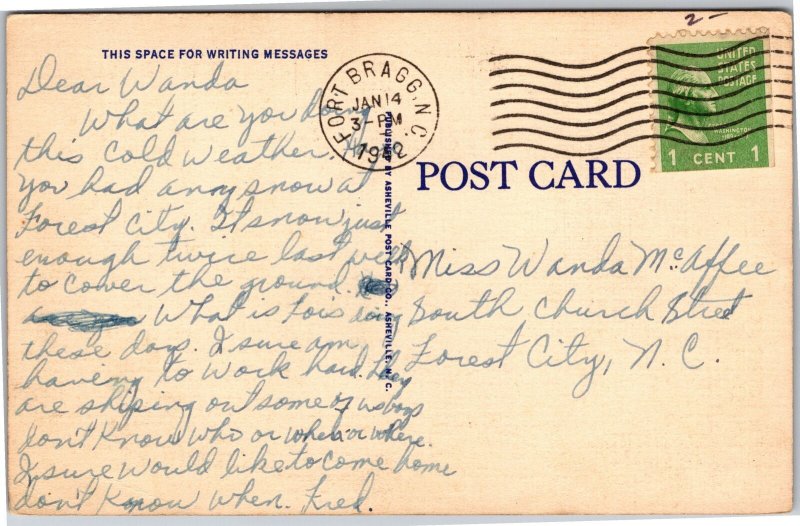 2-
THIS SPACE FOR WRITING MESSAGES
FORT BRAGG, N.C.
JAN 14
3-PM
1942
UNITED
STATES
POSTAGE
WASHINGTON
1 CENT 1
POST CARD
PUBLISHED BY ASHEVILLE POST CARD CO., ASHEVILLE, N. C.
Dear Wanda
What are you doing
this cold weather.
you had any snow at
Forest City. It snow just
enough twice last
to cover the ground.
What is Lois doing
these days. I sure am
having to work hard. They
are shiping out some of us boys
don't Know who or when or where.
I sure would like to come home
don't Know when. Fred.
Miss Wanda McAffee
South Church Street
Forest City, N. C.